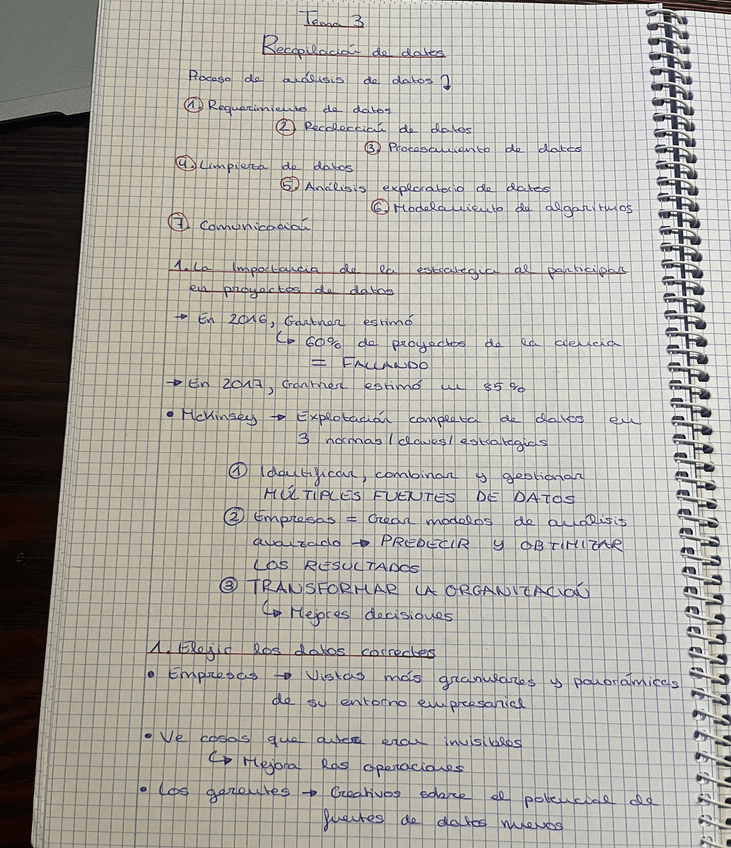 Tema 3
Recopilación de datos
Proceso de análisis de datos ⤵
① Requerimiento de datos
② Recolección de datos
③ Procesamiento de datos
④ Limpieza de datos
⑤ Análisis exploratorio de datos
⑥ Modelamiento de algoritmos
⑦ Comunicación
1. La importancia de la estrategia al participar
en proyectos de datos
→ En 2016, Gartner estimó
↳ 60% de proyectos de la ciencia
= FALLANDO
→ En 2017, Gartner estimó un 85%
• McKinsey → Explotación completa de datos en
3 normas/claves/estrategias
① Identificar, combinar y gestionar
MÚLTIPLES FUENTES DE DATOS
② Empresas = Crear modelos de análisis
avanzado → PREDECIR y OBTIMIZAR
LOS RESULTADOS
③ TRANSFORMAR LA ORGANIZACIÓN
↳ Mejores decisiones
1. Elegir los datos correctos
• Empresas → Vistas más granulares y panorámicas
de su entorno empresarial
• Ve cosas que antes eran invisibles
↳ Mejora las operaciones
• Los gerentes → Creativos sobre el potencial de
fuentes de datos nuevos